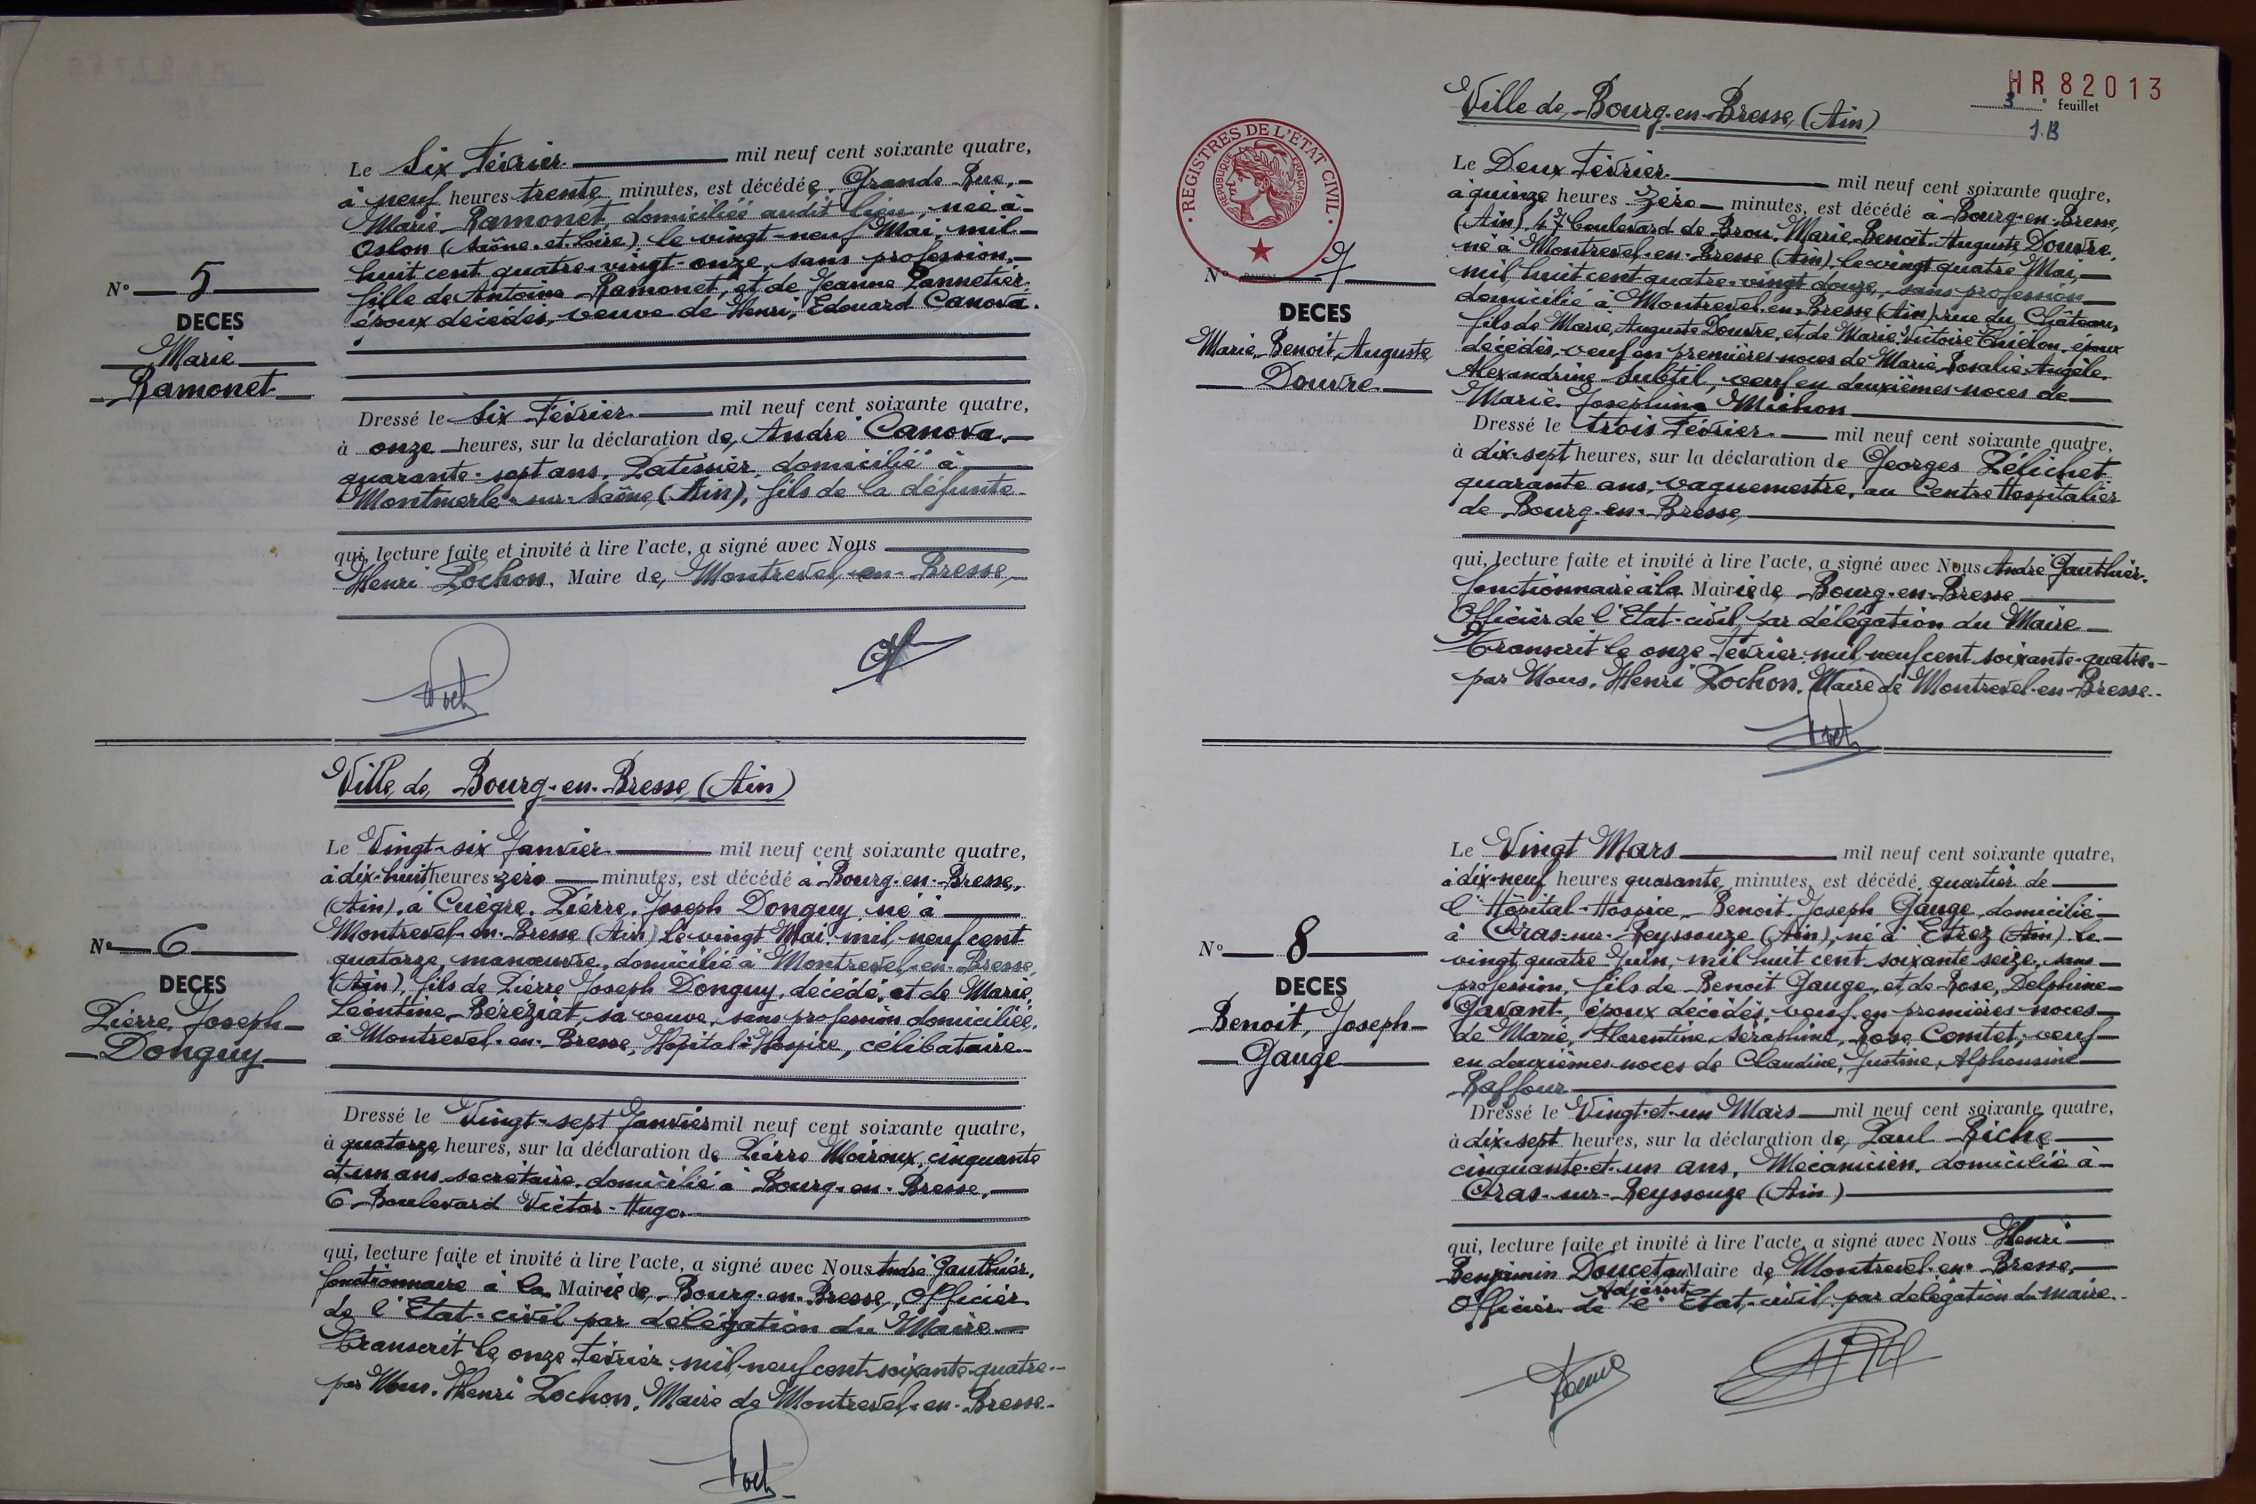 Le Six Février mil neuf cent soixante quatre,
à neuf heures trente minutes, est décédée, Grande Rue,
Marie Ramonet, domiciliée audit lieu, née à
Oslon (Saône-et-Loire) le vingt-neuf Mai, mil
huit cent quatre-vingt-onze, sans profession,
fille de Antoine Ramonet, et de Jeanne Pannetier,
époux décédés, veuve de Henri, Edouard Canova.
N° 5
DECES
Marie
Ramonet
Dressé le Six Février mil neuf cent soixante quatre,
à onze heures, sur la déclaration de, André Canova,
quarante-sept ans, Patissier, domicilié à
Montmerle-sur-Saône, (Ain), fils de la défunte
qui, lecture faite et invité à lire l'acte, a signé avec Nous
Henri Pochon, Maire de, Montrevel-en-Bresse,
Ville de Bourg-en-Bresse (Ain)
Le Vingt-six Janvier mil neuf cent soixante quatre,
à dix-huit heures zéro minutes, est décédé à Bourg-en-Bresse,
(Ain), à Cuègre, Pierre, Joseph Donguy, né à
Montrevel-en-Bresse (Ain) le vingt Mai, mil neuf cent
quatorze, manœuvre, domicilié à Montrevel-en-Bresse
(Ain), fils de Pierre Joseph Donguy, décédé, et de Marie,
Léontine Béréziat, sa veuve, sans profession domiciliée,
à Montrevel-en-Bresse, Hôpital-Hospice, célibataire
N° 6
DECES
Pierre, Joseph
Donguy
Dressé le Vingt-sept Janvier mil neuf cent soixante quatre,
à quatorze heures, sur la déclaration de Pierre Moiroux, cinquante
et un ans, secrétaire, domicilié à Bourg-en-Bresse,
6 Boulevard Victor-Hugo
qui, lecture faite et invité à lire l'acte, a signé avec Nous André Gauthier,
fonctionnaire à la Mairie de, Bourg-en-Bresse, Officier
de l'Etat-civil par délégation du Maire
Transcrit le onze Février mil neuf cent soixante-quatre
par Nous, Henri Pochon, Maire de Montrevel-en-Bresse
HR 82013
3e feuillet
J.B
Ville de Bourg-en-Bresse, (Ain)
REGISTRES DE L'ETAT CIVIL
REPUBLIQUE FRANÇAISE
Le Deux Février mil neuf cent soixante quatre,
à quinze heures zéro minutes, est décédé à Bourg-en-Bresse,
(Ain), 47 boulevard de Brou, Marie, Benoit, Auguste Douvre,
né à Montrevel-en-Bresse (Ain), le vingt quatre Mai,
mil huit cent quatre-vingt douze, sans profession
domicilié à Montrevel-en-Bresse (Ain) rue du Château,
fils de Marie, Auguste Douvre, et de Marie Victoire époux
décédés, veuf en premières noces de Marie, Rosalie, Angèle,
Alexandrine Subtil, veuf en deuxièmes noces de
Marie, Josephine Michon
N° 7
DECES
Marie, Benoit, Auguste
Douvre
Dressé le trois Février mil neuf cent soixante quatre,
à dix-sept heures, sur la déclaration de Georges Pélichet
quarante ans, vaguemestre, au Centre Hospitalier
de Bourg-en-Bresse
qui, lecture faite et invité à lire l'acte, a signé avec Nous André Gauthier,
fonctionnaire à la Mairie de, Bourg-en-Bresse
Officier de l'Etat-civil, par délégation du Maire
Transcrit le onze Février mil neuf cent soixante-quatre
par Nous, Henri Pochon, Maire de Montrevel-en-Bresse
Le Vingt Mars mil neuf cent soixante quatre,
à dix-neuf heures quarante minutes, est décédé, quartier de
l'Hôpital-Hospice, Benoit, Joseph Gauge, domicilié
à Cras-sur-Reyssouze (Ain), né à Etrez (Ain) le
vingt quatre Juin, mil huit cent soixante seize, sans
profession, fils de Benoit Gauge, et de Rose, Delphine
Gavant, époux décédés, veuf en premières noces
de Marie, Florentine, Séraphine, Rose Comtet, veuf
en deuxièmes noces de Claudine, Justine, Alphonsine
Raffour
N° 8
DECES
Benoit, Joseph
Gauge
Dressé le Vingt-et-un Mars mil neuf cent soixante quatre,
à dix-sept heures, sur la déclaration de, Paul Riche
cinquante-et-un ans, Mécanicien, domicilié à
Cras-sur-Reyssouze (Ain)
qui, lecture faite et invité à lire l'acte, a signé avec Nous Henri
Benjamin Doucet Adjoint au Maire de, Montrevel-en-Bresse,
Officier de l'Etat-civil, par délégation du maire